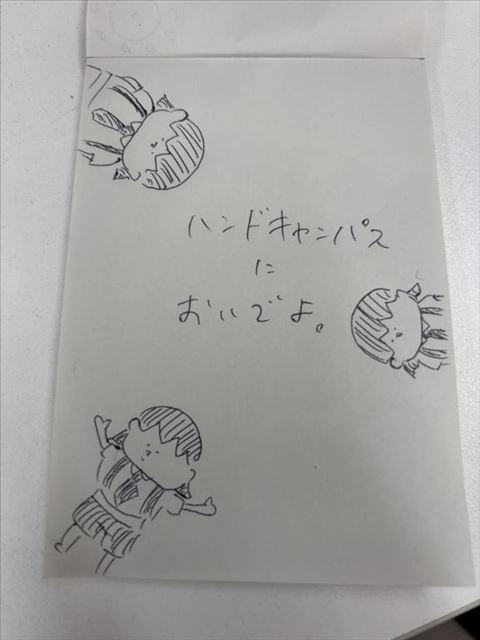 ハンドキャンパス
に
おいでよ。